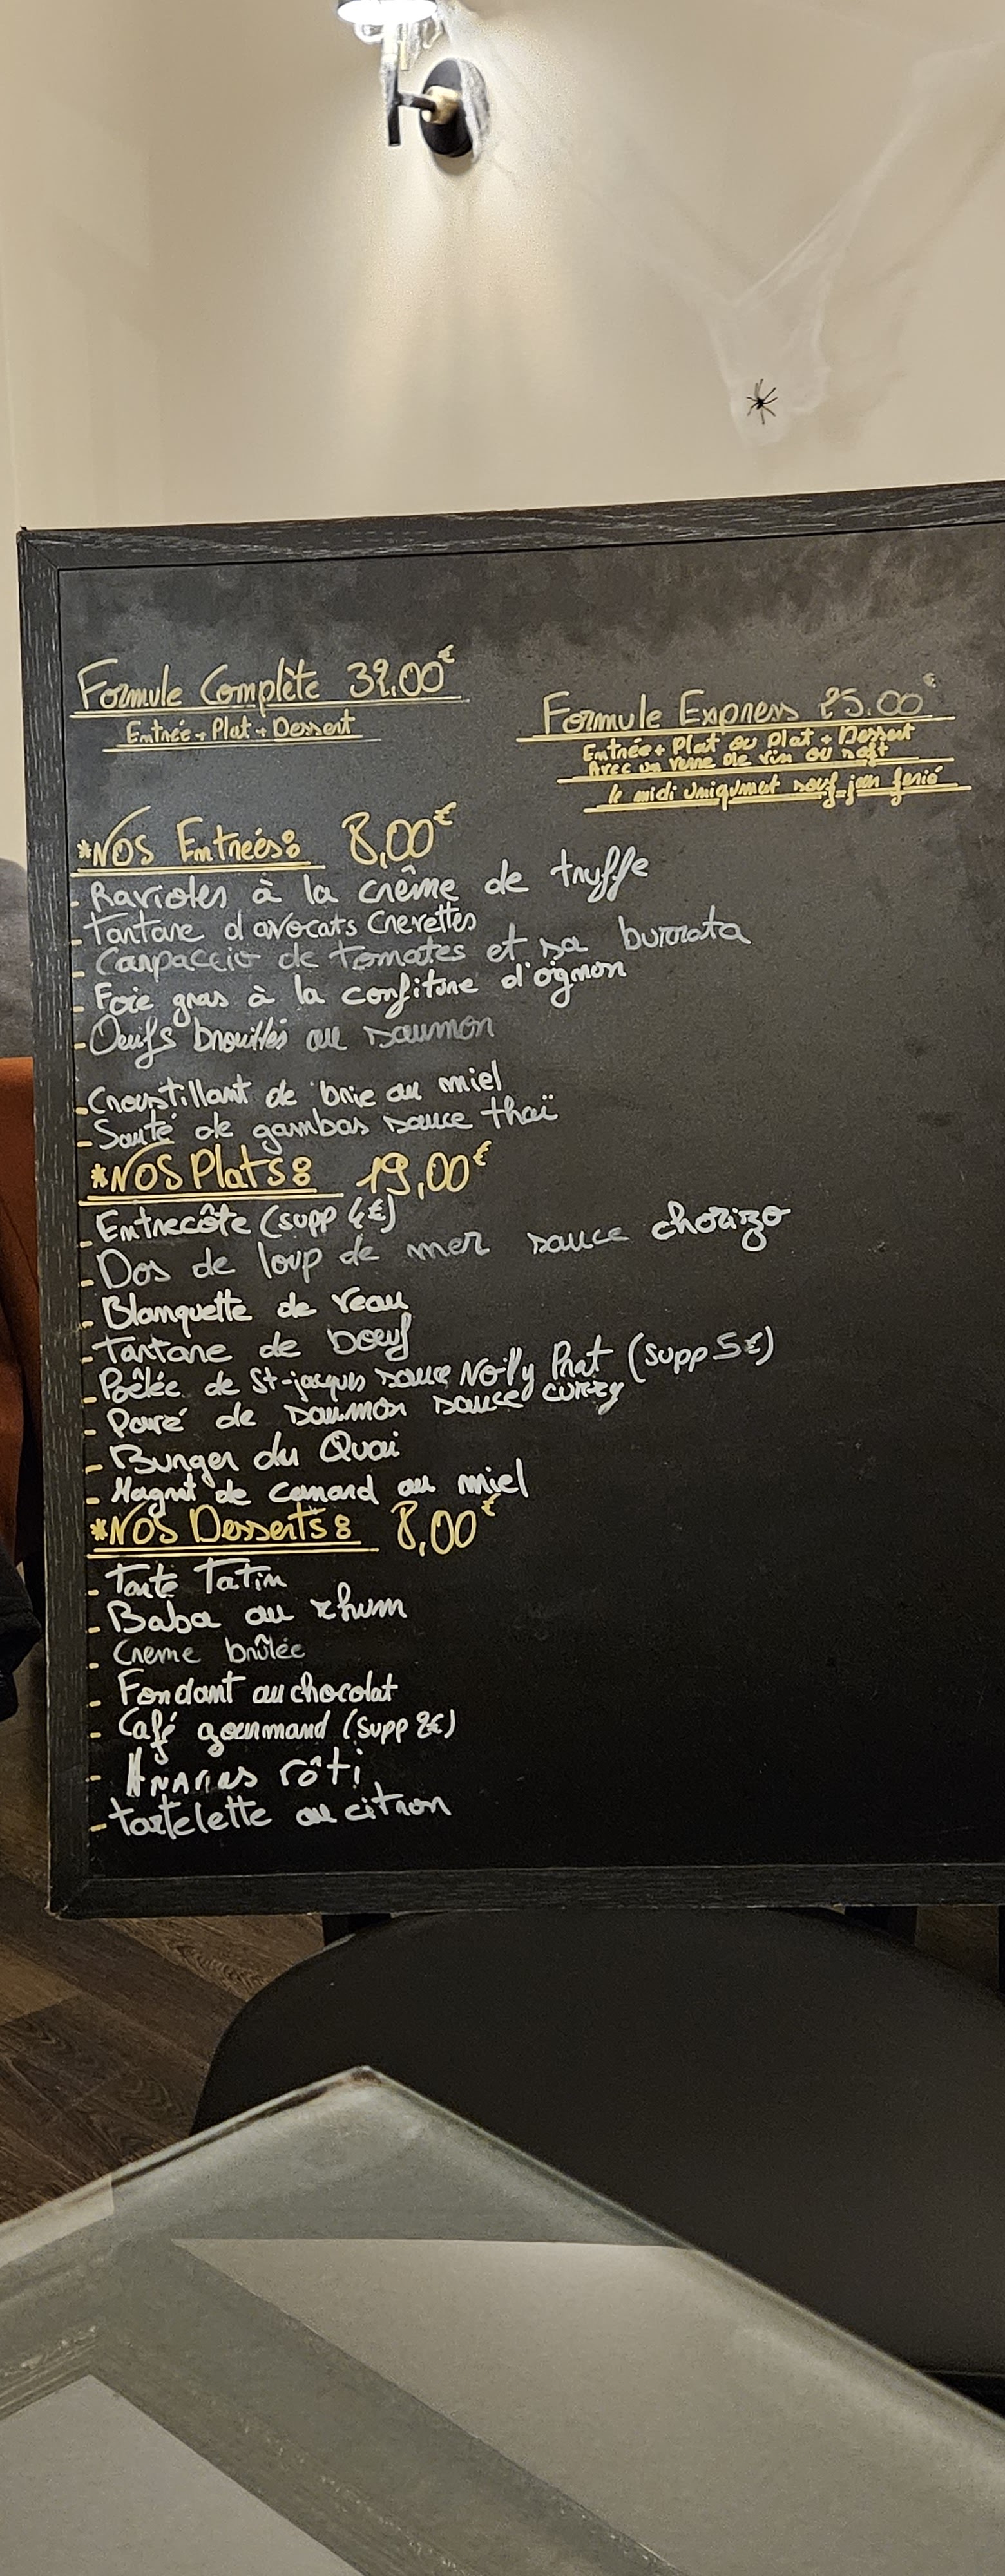 Formule Complète 32.00€
Entrée + Plat + Dessert
Formule Express 25.00€
Entrée + Plat ou Plat + Dessert
Avec un verre de vin ou soft
le midi uniquement sauf jour ferié
*NOS Entrées: 8,00€
- Ravioles à la crème de truffe
- Tartare d'avocats Crevettes
- Carpaccio de tomates et sa burrata
- Foie gras à la confiture d'oignon
- Oeufs brouillés au saumon
- Croustillant de brie au miel
- Sauté de gambas sauce thaï
*NOS Plats: 19,00€
- Entrecôte (supp 4€)
- Dos de loup de mer sauce chorizo
- Blanquette de veau
- Tartare de boeuf
- Poêlée de St-jacques sauce Noilly Prat (supp 5€)
- Pavé de saumon sauce curry
- Burger du Quai
- Magret de canard au miel
*NOS Desserts: 8,00€
- Tarte Tatin
- Baba au rhum
- Crème brûlée
- Fondant au chocolat
- Café gourmand (supp 2€)
- Ananas rôti
- Tartelette au citron